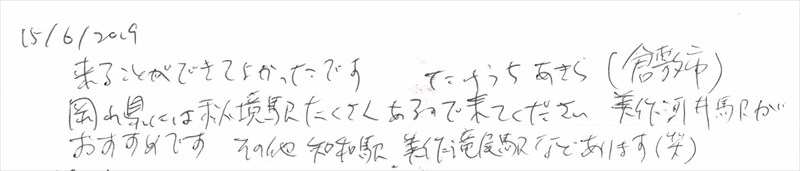 15/6/2019
来ることができてよかったです たけうち あきら (倉敷市)
岡山県には秘境駅たくさんあるので来てください 美作河井駅が
おすすめです その他 知和駅、美作滝尾駅などあります(笑)